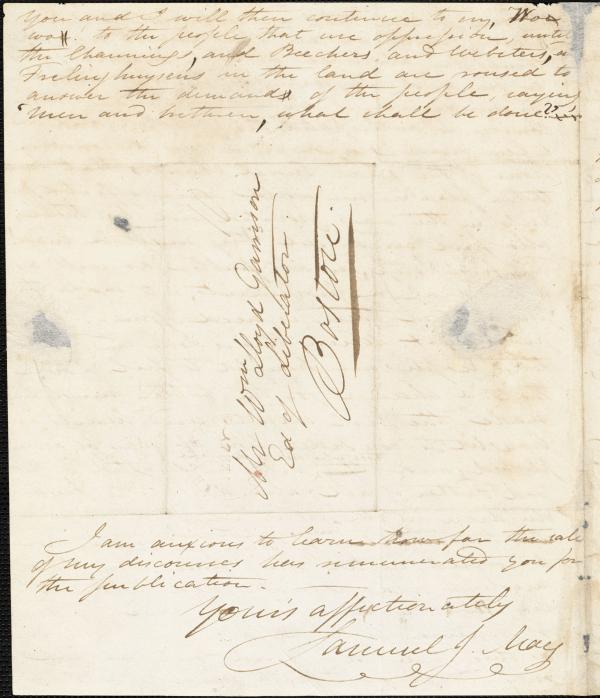 you and I will then continue to cry, Woe
wo!! to the people that use oppression, until
the Channings, and Beechers, and Websters, &
Frelinghuysens in the land are roused to
answer the demands of the people, saying
"Men and brethren, what shall be done?"
Mr Wm Lloyd Garrison
Ed of Liberator
Boston.
I am anxious to learn how far the sale
of my discourses has remunerated you for
the publication.
Yours affectionately
Samuel J. May